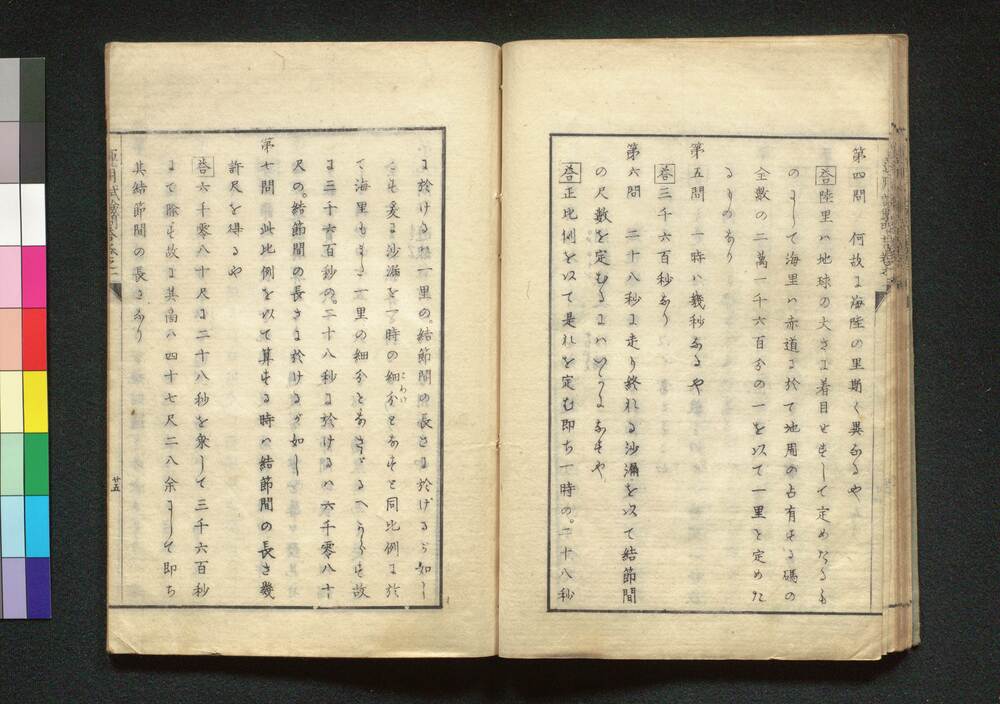 第四問 何故ニ海陸の里斯く異なるや
答 陸里ハ地球の大さに着目せずして定めたるも
のにして海里ハ赤道に於て地周の占有する碼の
全数の二萬一千六百分の一を以て一里と定めた
るものなり
第五問 一時ハ幾秒なるや
答 三千六百秒なり
第六問 二十八秒に走り終れる沙漏を以て結節間
の尺数を定むるにハいかになすや
答 正比例を以て是れを定む即ち一時の。二十八秒
に於ける。一里の。結節間の長さに於けるが如し
こまかい
て海里もまた一里の細分となさざるべからず故
に三千六百秒の。二十八秒に於けるハ六千零八十
尺の。結節間の長さに於けるが如し
第七問 此比例を以て算する時ハ結節間の長さ幾
許尺を得るや
答 六千零八十尺に二十八秒を乗して三千六百秒
にて除す故に其高ハ四十七尺二八余にして即ち
其結節間の長さなり
廿五